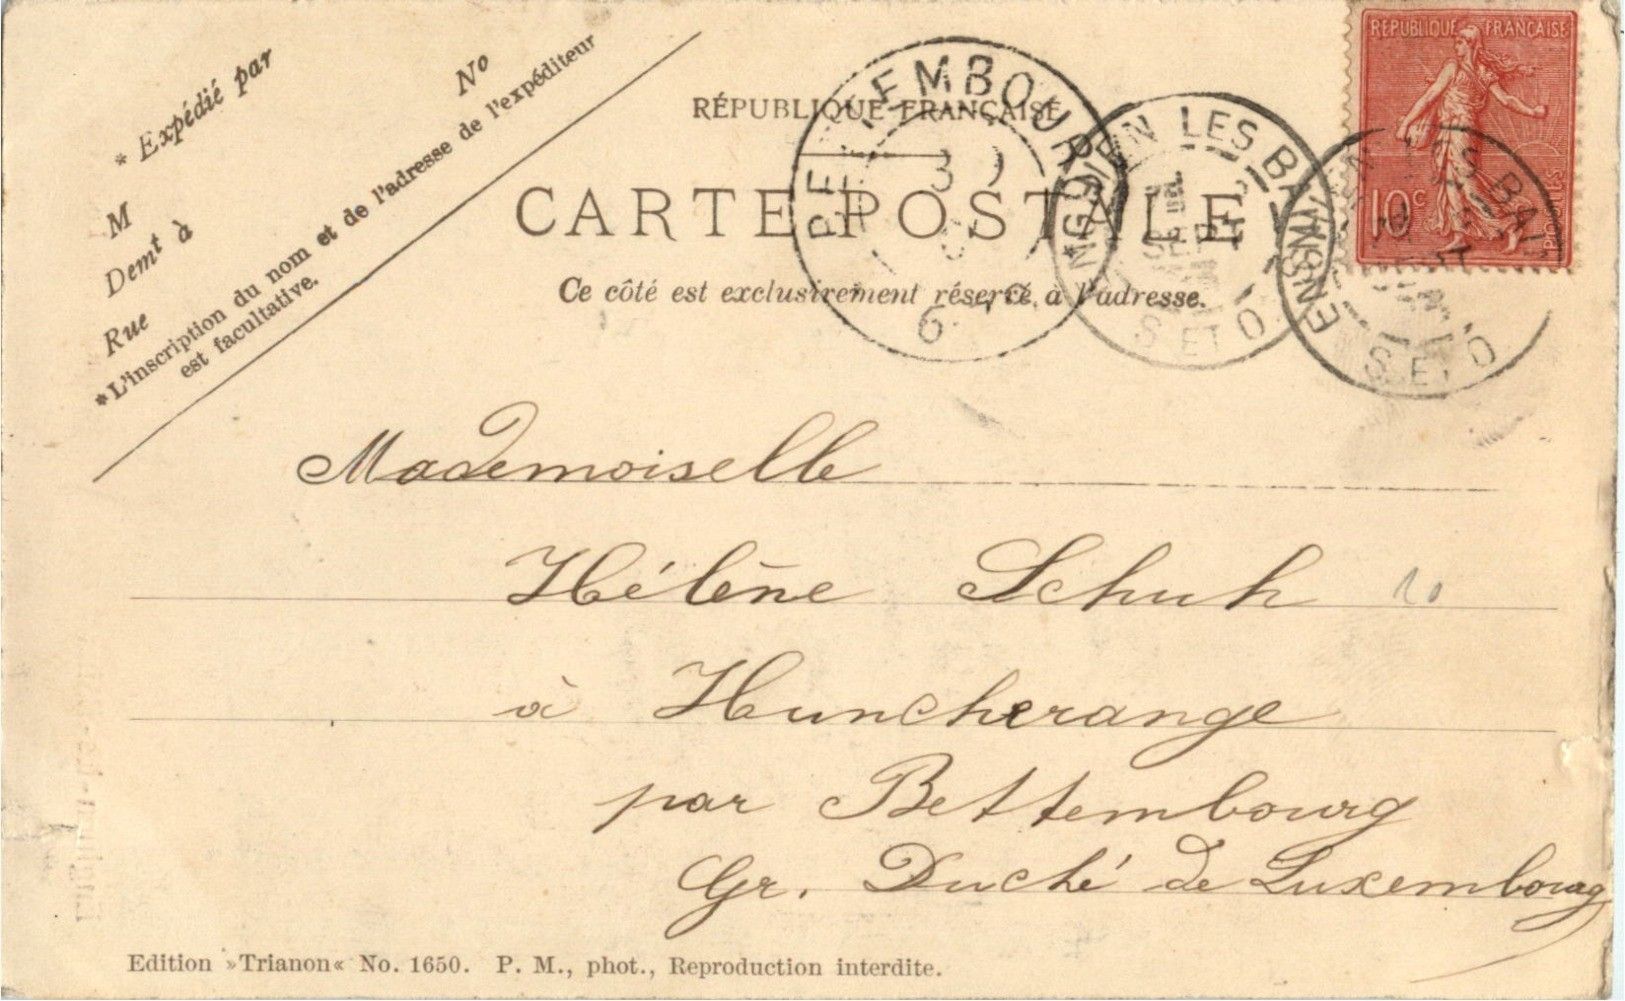 * Expédié par
No
M
Demt à
Rue
*L'inscription du nom et de l'adresse de l'expéditeur
est facultative.
RÉPUBLIQUE FRANÇAISE
CARTE POSTALE
Ce côté est exclusivement réservé à l'adresse.
REPUBLIQUE FRANÇAISE
10c
POSTES
LES BAINS
S ET O
S ET O
Mademoiselle
Hélène Schuh
10
à Huncherange
par Bettembourg
Gr. Duché de Luxembourg
Edition »Trianon« No. 1650. P. M., phot., Reproduction interdite.